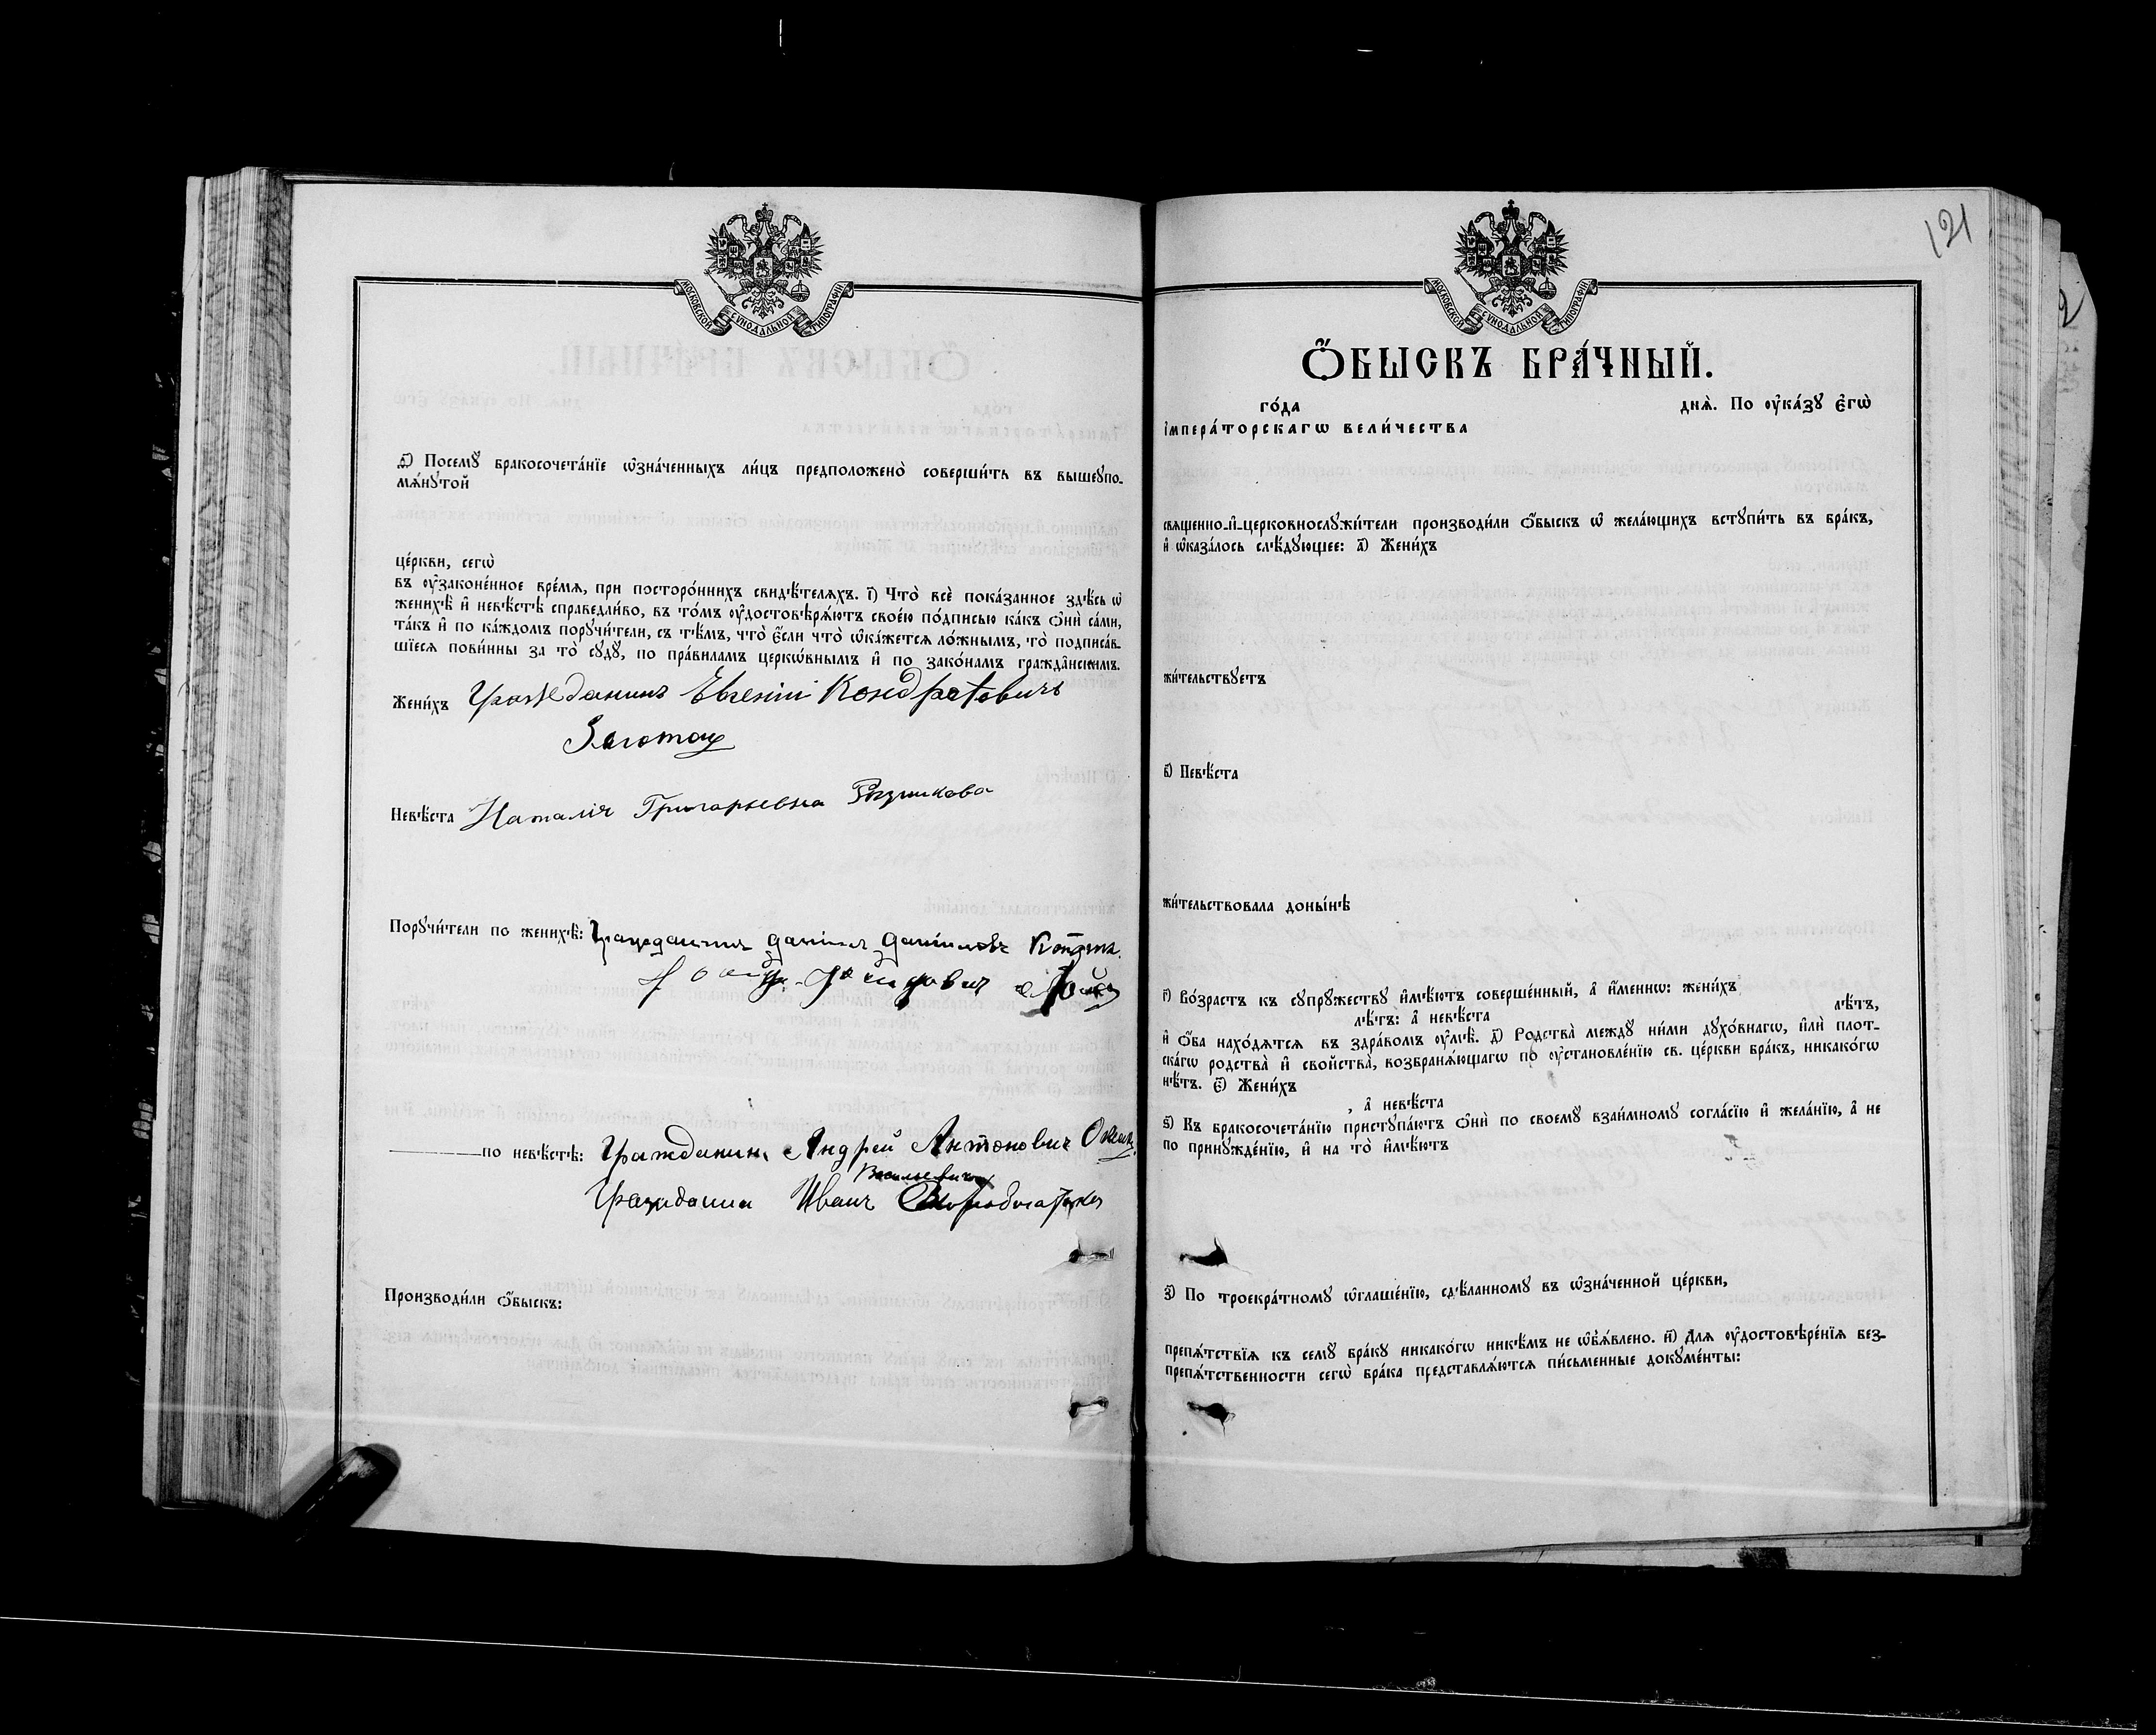 МОСКОВСКОЙ СѴНОДАЛЬНОЙ ТИПОГРАФІИ
ѳ҃) Посемꙋ̀ бракосочета́нїе ѡ҆зна́ченныхъ ли́цъ предположено̀ соверши́ть въ вышеꙋпо-
мѧ́нꙋтой
це́ркви, сегѡ̀
въ ᲂу҆законе́нное вре́мѧ, при посторо́ннихъ свидѣ́телѧхъ. і҃) Что̀ всѐ пока́занное здѣ́сь ѡ҆
женихѣ̀ и҆ невѣ́стѣ справедли́во, въ то́мъ ᲂу҆достовѣрѧ́ютъ свое́ю по́дписью ка́къ ѻ҆нѝ са́ми,
та́къ и҆ по ка́ждомъ порꙋчи́тели, съ тѣ́мъ, что̀ є҆́сли что̀ ѡ҆ка́жется ло́жнымъ, то̀ подписа́в-
шїесѧ пови́нны за то̀ сꙋдꙋ̀, по пра́виламъ церкѡ́внымъ и҆ по зако́намъ гражда́нскимъ.
Жени́хъ Гражданинъ Евгеній Кондратовичъ
Невѣ́ста Наталія Григорьевна
Порꙋчи́тели по женихѣ̀: Гражданинъ Даніилъ Даніиловъ
по невѣ́стѣ: Гражданинъ Андрей Антоновичъ
Васильевичъ
Гражданин Иванъ
Производи́ли ѻ҆́быскъ:
121
МОСКОВСКОЙ СѴНОДАЛЬНОЙ ТИПОГРАФІИ
Ѻ҆́БЫСКЪ БРА́ЧНЫЙ.
го́да днѧ̀. По ᲂу҆ка́зꙋ є҆гѡ̀
і҆мпера́торскагѡ вели́чества
свѧщенно-и҆-церковнослꙋжи́тели производи́ли ѻ҆́быскъ ѡ҆ жела́ющихъ встꙋпи́ть въ бра́къ,
и҆ ѡ҆каза́лось слѣ́дꙋющее: а҃) Жени́хъ
жи́тельствꙋетъ
в҃) Невѣ́ста
жи́тельствовала доны́нѣ
г҃) Во́зрастъ къ сꙋпрꙋжествꙋ и҆мѣ́ютъ соверше́нный, а҆ и҆́меннѡ: жени́хъ
лѣ́тъ: а҆ невѣ́ста лѣ́тъ,
и҆ ѻ҆́ба нахо́дѧтсѧ въ здра́вомъ ᲂу҆мѣ̀. д҃) Родства̀ междꙋ ни́ми дꙋхо́внагѡ, и҆лѝ плот-
ска́гѡ родства̀ и҆ свойства̀, возбранѧ́ющагѡ по ᲂу҆становле́нїю св. це́ркви бра́къ, никако́гѡ
нѣ́тъ. є҃) Жени́хъ
, а҆ невѣ́ста
ѕ҃) Къ бракосочета́нїю пристꙋпа́ютъ ѻ҆нѝ по своемꙋ̀ взаи́мномꙋ согла́сїю и҆ жела́нїю, а҆ не
по принꙋжде́нїю, и҆ на то̀ и҆мѣ́ютъ
з҃) По троекра́тномꙋ ѡ҆глаше́нїю, сдѣ́ланномꙋ въ ѡ҆зна́ченной це́ркви,
препѧ́тствїѧ къ семꙋ̀ бра́кꙋ никако́гѡ никѣ́мъ не ѡ҆б̾ѧ́влено. и҃) Длѧ ᲂу҆достовѣре́нїѧ без-
препѧ́тственности сегѡ̀ бра́ка представлѧ́ютсѧ пи́сьменные докꙋме́нты: